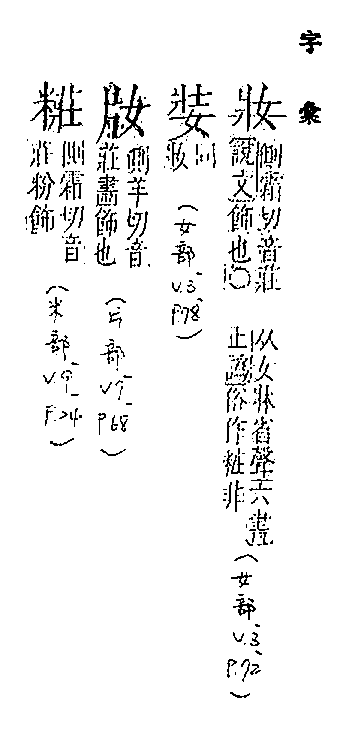 字彙
妝 側霜切音莊
說文飾也○
从女牀省聲六書
正譌俗作粧非
(女部 V.3 P.72)
娤 同
妝
(女部 V.3 P.78)
側羊切音
莊畫飾也
(片部 V.7 P.68)
粧 側霜切音
莊粉飾
(米部 V.9 P.24)